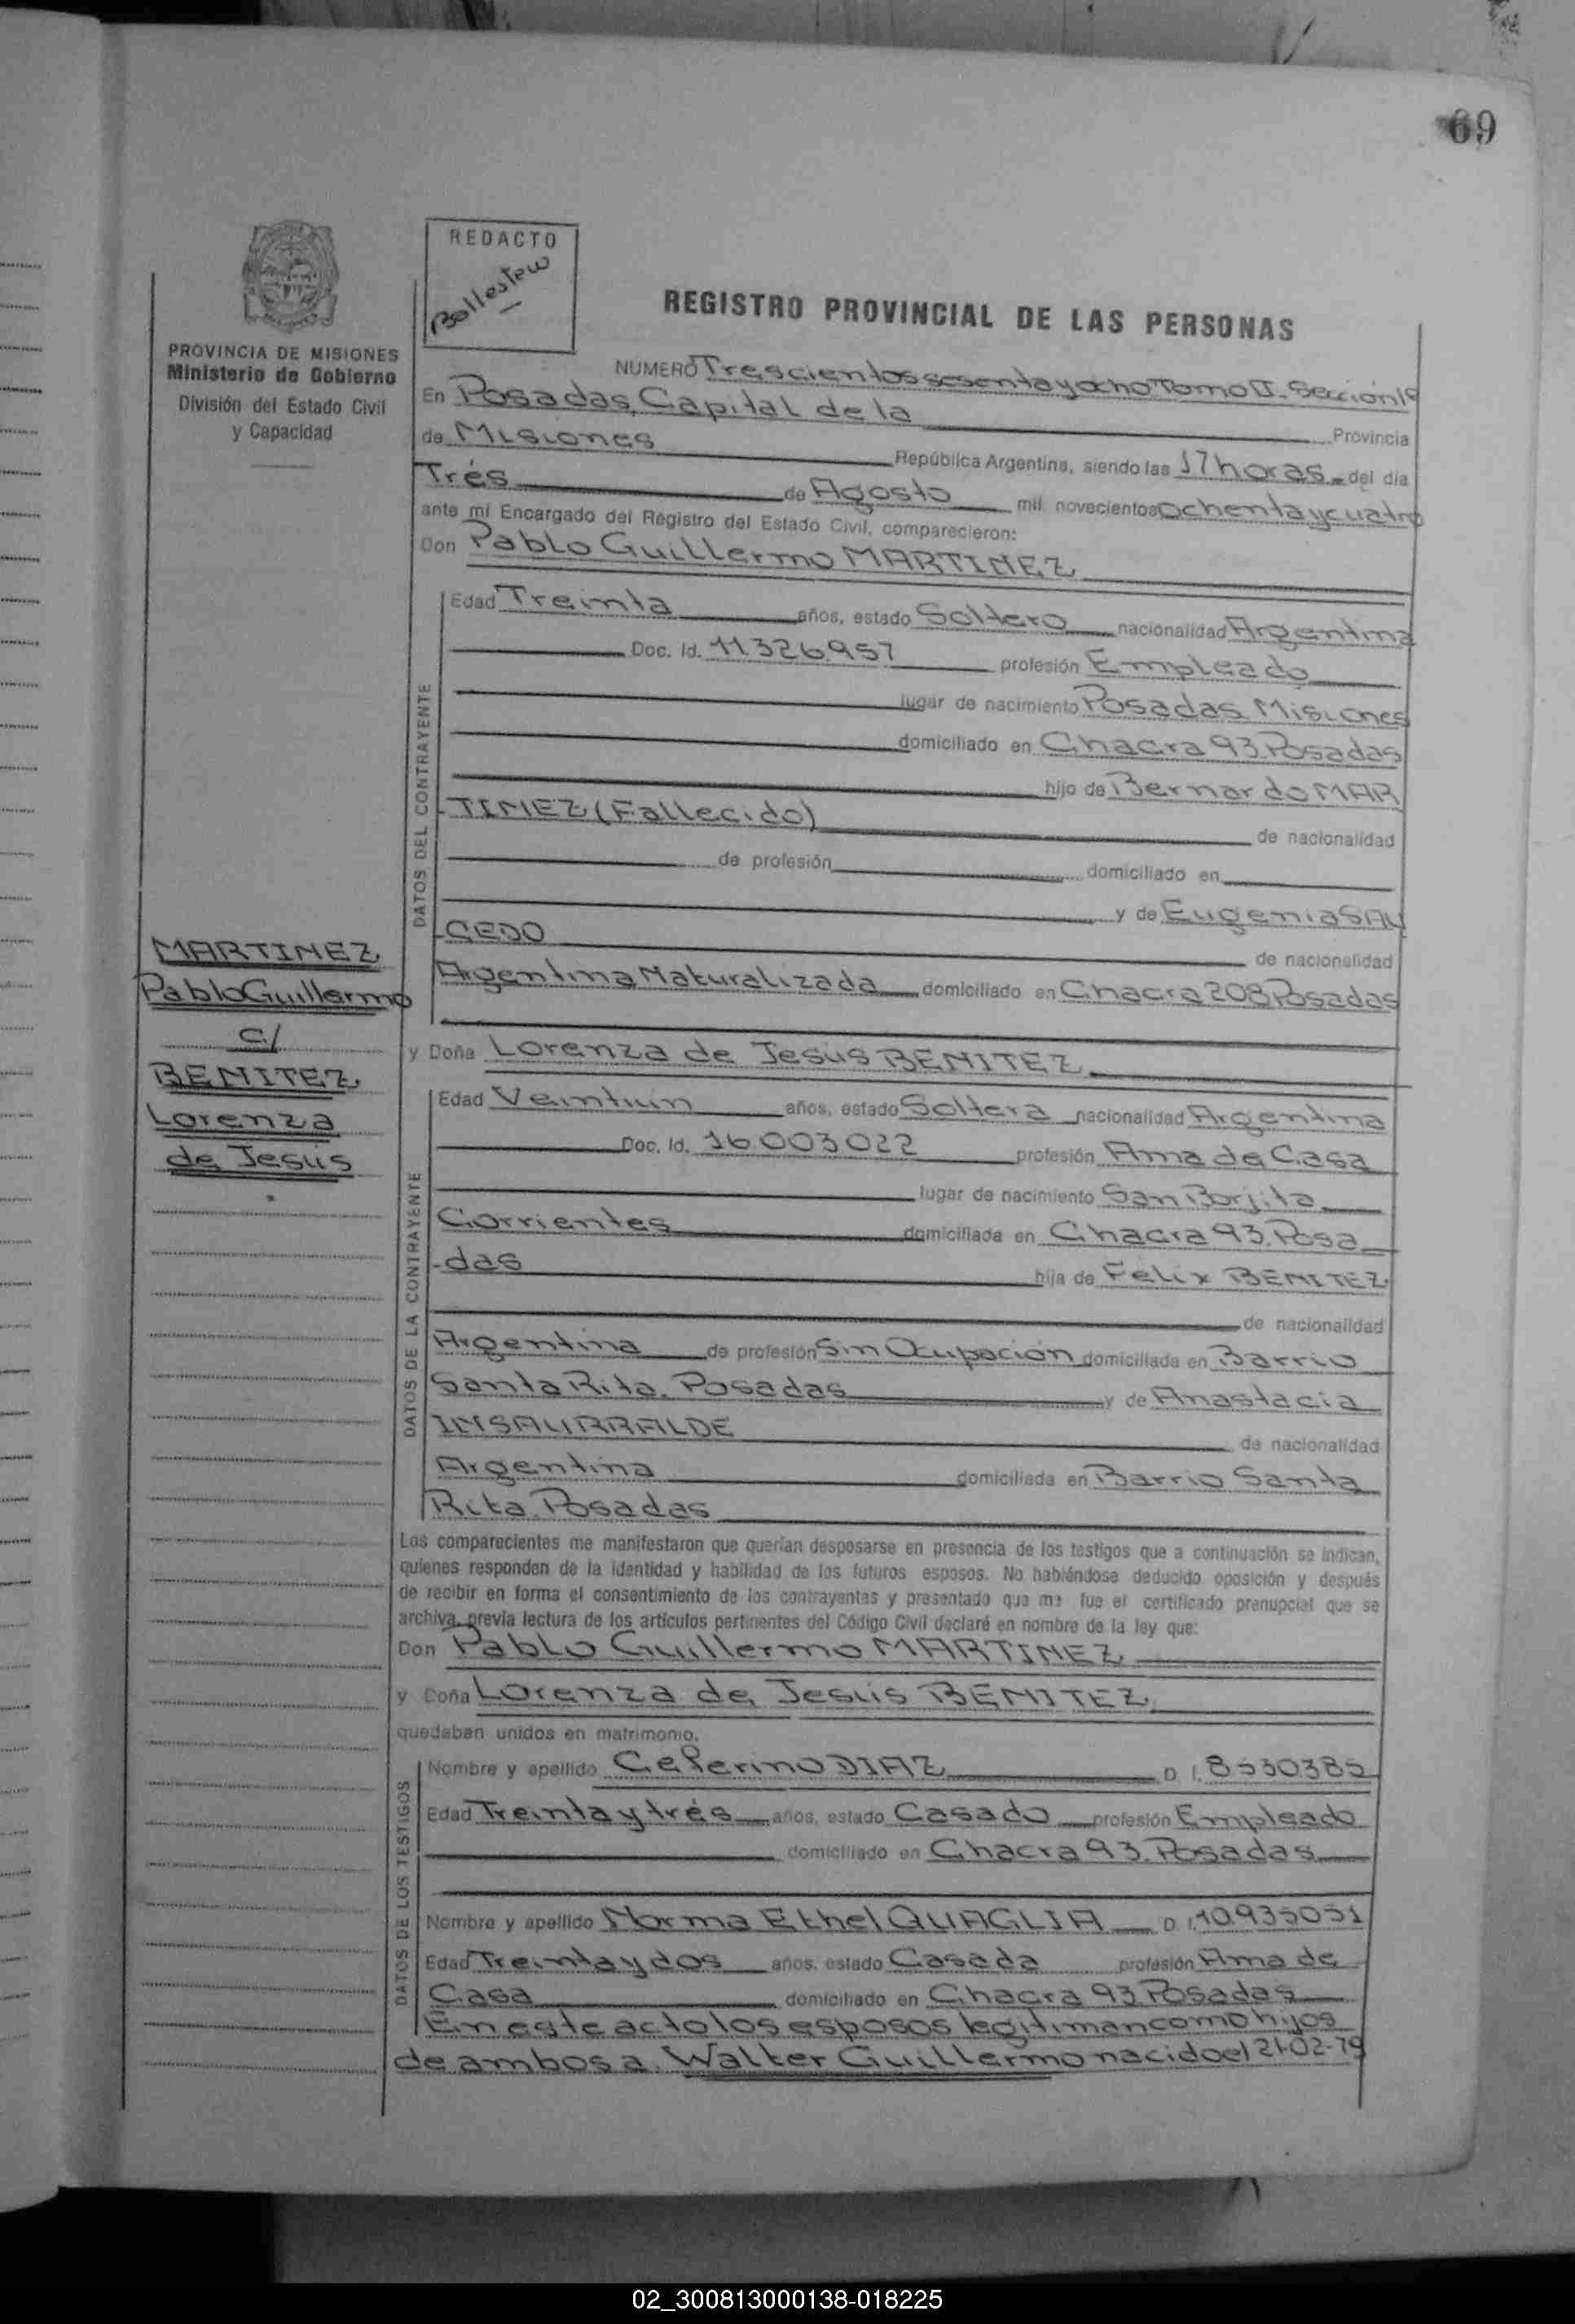 69
REDACTO
Ballestew
REGISTRO PROVINCIAL DE LAS PERSONAS
PROVINCIA DE MISIONES
Ministerio de Gobierno
División del Estado Civil
y Capacidad
NUMERO Trescientos sesenta y ocho Tomo II. Sección 1º
En Posadas, Capital de la Provincia
de Misiones República Argentina, siendo las 17 horas del día
Trés de Agosto mil novecientos ochenta y cuatro
ante mí Encargado del Registro del Estado Civil, comparecieron:
Don Pablo Guillermo MARTINEZ
DATOS DEL CONTRAYENTE
Edad Treinta años, estado Soltero nacionalidad Argentina
Doc. Id. 11.326.957 profesión Empleado
lugar de nacimiento Posadas Misiones
domiciliado en Chacra 93. Posadas
hijo de Bernardo MAR
-TINEZ (Fallecido) de nacionalidad
de profesión domiciliado en
y de Eugenia SAU
-CEDO de nacionalidad
Argentina Naturalizada domiciliado en Chacra 208 Posadas
y Doña Lorenza de Jesús BENITEZ
MARTINEZ
Pablo Guillermo
C/
BENITEZ
Lorenza
de Jesús
DATOS DE LA CONTRAYENTE
Edad Veintiún años, estado Soltera nacionalidad Argentina
Doc. Id. 16.003.022 profesión Ama de Casa
lugar de nacimiento San Borjita
Corrientes domiciliada en Chacra 93. Posa
-das hija de Felix BENITEZ
de nacionalidad
Argentina de profesión Sin Ocupación domiciliada en Barrio
Santa Rita. Posadas y de Anastacia
INSAURRALDE de nacionalidad
Argentina domiciliada en Barrio Santa
Rita. Posadas
Los comparecientes me manifestaron que querían desposarse en presencia de los testigos que a continuación se indican,
quienes responden de la identidad y habilidad de los futuros esposos. No habiéndose deducido oposición y después
de recibir en forma el consentimiento de los contrayentes y presentado que me fue el certificado prenupcial que se
archiva, previa lectura de los artículos pertinentes del Código Civil declaré en nombre de la ley que:
Don Pablo Guillermo MARTINEZ
y Doña Lorenza de Jesús BENITEZ
quedaban unidos en matrimonio.
DATOS DE LOS TESTIGOS
Nombre y apellido Ceferino DIAZ D. I. 8530385
Edad Treinta y trés años, estado Casado profesión Empleado
domiciliado en Chacra 93. Posadas
Nombre y apellido Norma Ethel QUAGLIA D. I. 10.935051
Edad Treinta y dos años, estado Casada profesión Ama de
Casa domiciliado en Chacra 93 Posadas
En este acto los esposos legitiman como hijos
de ambos a. Walter Guillermo nacido el 21-02-79
02_300813000138-018225